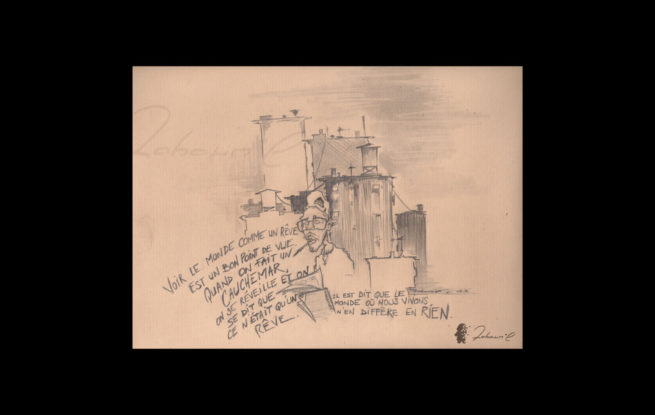 VOIR LE MONDE COMME UN RÊVE
EST UN BON POINT DE VUE.
QUAND ON FAIT UN
CAUCHEMAR,
ON SE RÉVEILLE ET ON
SE DIT QUE
CE N'ÉTAIT QU'UN
RÊVE...
IL EST DIT QUE LE
MONDE OÙ NOUS VIVONS
N'EN DIFFÈRE EN RIEN.